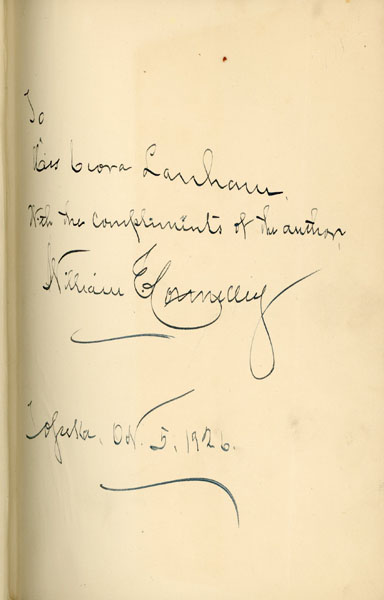 To
Miss Cora Lanham,
With the compliments of the author,
William E Connelley
Topeka, Oct. 5, 1926.